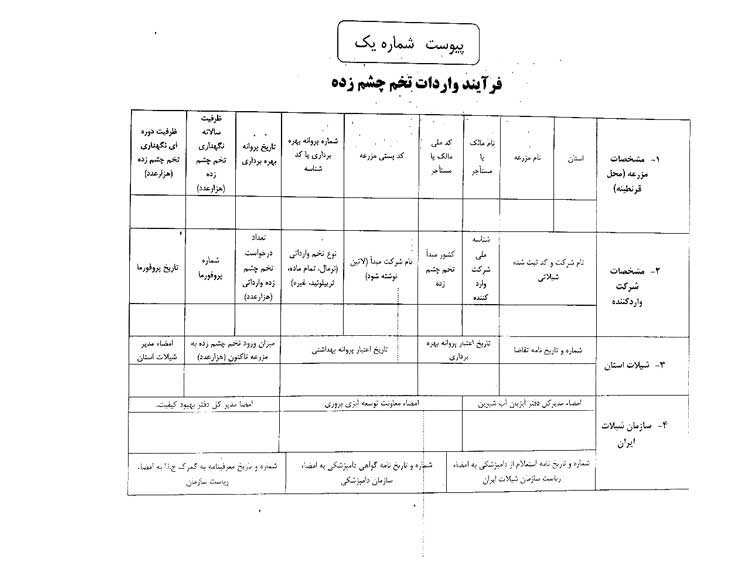 پیوست شماره یک
فرآیند واردات تخم چشم زده
۱- مشخصات
مزرعه (محل
قرنطینه)
استان
نام مزرعه
نام مالک
یا
مستأجر
کد ملی
مالک یا
مستأجر
کد پستی مزرعه
شماره پروانه بهره
برداری یا کد
شناسه
تاریخ پروانه
بهره برداری
ظرفیت
سالانه
نگهداری
تخم چشم
زده
(هزارعدد)
ظرفیت دوره
ای نگهداری
تخم چشم زده
(هزارعدد)
۲- مشخصات
شرکت
واردکننده
نام شرکت و کد ثبت شده
شیلاتی
شناسه
ملی
شرکت
وارد
کننده
کشور مبدأ
تخم چشم
زده
نام شرکت مبدأ (لاتین
نوشته شود)
نوع تخم وارداتی
(نرمال، تمام ماده،
تریپلوئید، غیره)
تعداد
درخواست
تخم چشم
زده وارداتی
(هزارعدد)
شماره
پروفورما
تاریخ پروفورما
۳- شیلات استان
شماره و تاریخ نامه تقاضا
تاریخ اعتبار پروانه بهره
برداری
تاریخ اعتبار پروانه بهداشتی
میزان ورود تخم چشم زده به
مزرعه تاکنون (هزارعدد)
امضاء مدیر
شیلات استان
۴- سازمان شیلات
ایران
امضاء مدیرکل دفتر آبزیان آب شیرین
امضاء معاونت توسعه آبزی پروری
امضا مدیر کل دفتر بهبود کیفیت.
شماره و تاریخ نامه استعلام از دامپزشکی به امضاء
ریاست سازمان شیلات ایران
شماره و تاریخ نامه گواهی دامپزشکی به امضاء
سازمان دامپزشکی
شماره و تاریخ معرفینامه به گمرک ج.ا.ا به امضاء
ریاست سازمان